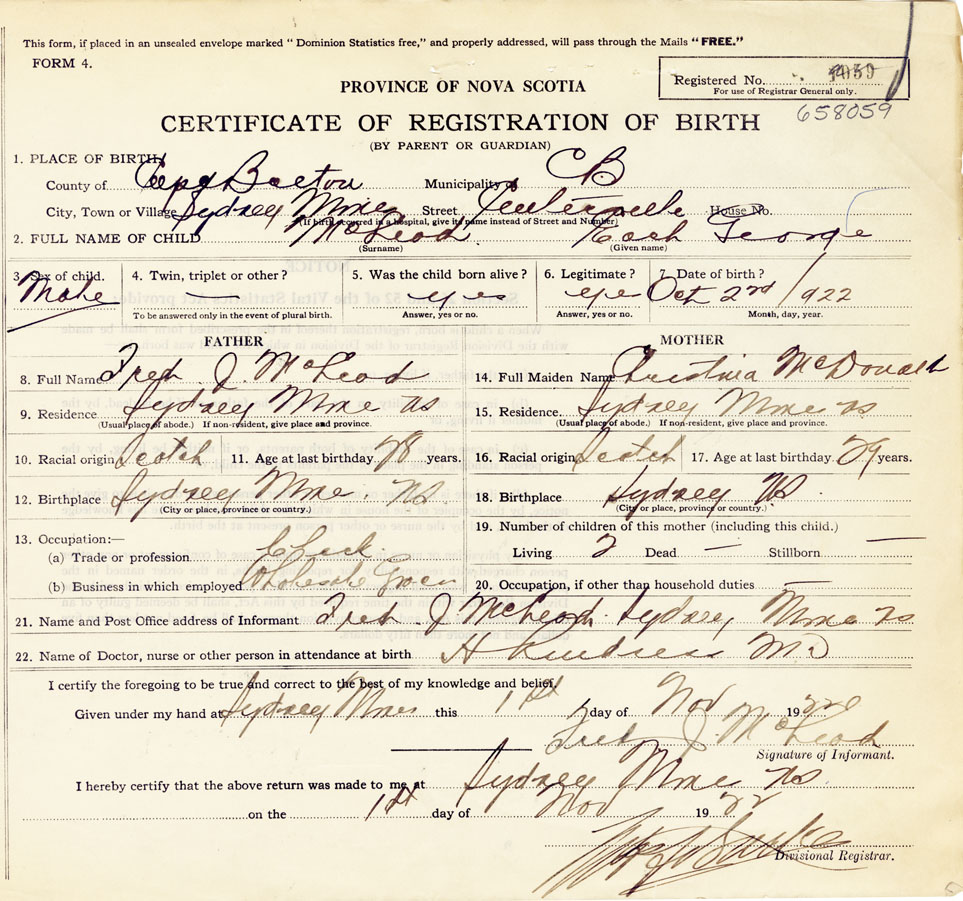 This form, if placed in an unsealed envelope marked “Dominion Statistics free,” and properly addressed, will pass through the Mails “FREE.”
FORM 4.
Registered No.
For use of Registrar General only.
658059
PROVINCE OF NOVA SCOTIA
CERTIFICATE OF REGISTRATION OF BIRTH
(BY PARENT OR GUARDIAN)
1. PLACE OF BIRTH
County of Cape Breton Municipality of C B
City, Town or Village Sydney Mines Street House No.
(If birth occurred in a hospital, give its name instead of Street and Number)
2. FULL NAME OF CHILD McLeod George
(Surname) (Given name)
3. Sex of child. 4. Twin, triplet or other? 5. Was the child born alive? 6. Legitimate? 7. Date of birth?
Male — yes Oct 2nd 1922
To be answered only in the event of plural birth. Answer, yes or no. Answer, yes or no. Month, day, year.
FATHER MOTHER
8. Full Name Fred J. McLeod 14. Full Maiden Name Christina McDonald
9. Residence Sydney Mines NS 15. Residence. Sydney Mines NS
(Usual place of abode.) If non-resident, give place and province. (Usual place of abode.) If non-resident, give place and province.
10. Racial origin Scotch 11. Age at last birthday 28 years. 16. Racial origin Scotch 17. Age at last birthday. 29 years.
12. Birthplace Sydney Mines NS 18. Birthplace Sydney NS
(City or place, province or country.) (City or place, province or country.)
13. Occupation:— 19. Number of children of this mother (including this child.)
(a) Trade or profession Clerk Living 2 Dead — Stillborn —
(b) Business in which employed Wholesale 20. Occupation, if other than household duties —
21. Name and Post Office address of Informant Fred J McLeod Sydney Mines NS
22. Name of Doctor, nurse or other person in attendance at birth MD
I certify the foregoing to be true and correct to the best of my knowledge and belief,
Given under my hand at Sydney Mines this 1st day of Nov 1922
Fred J McLeod
Signature of Informant.
I hereby certify that the above return was made to me at Sydney Mines NS
on the 1st day of Nov 1922
Divisional Registrar.